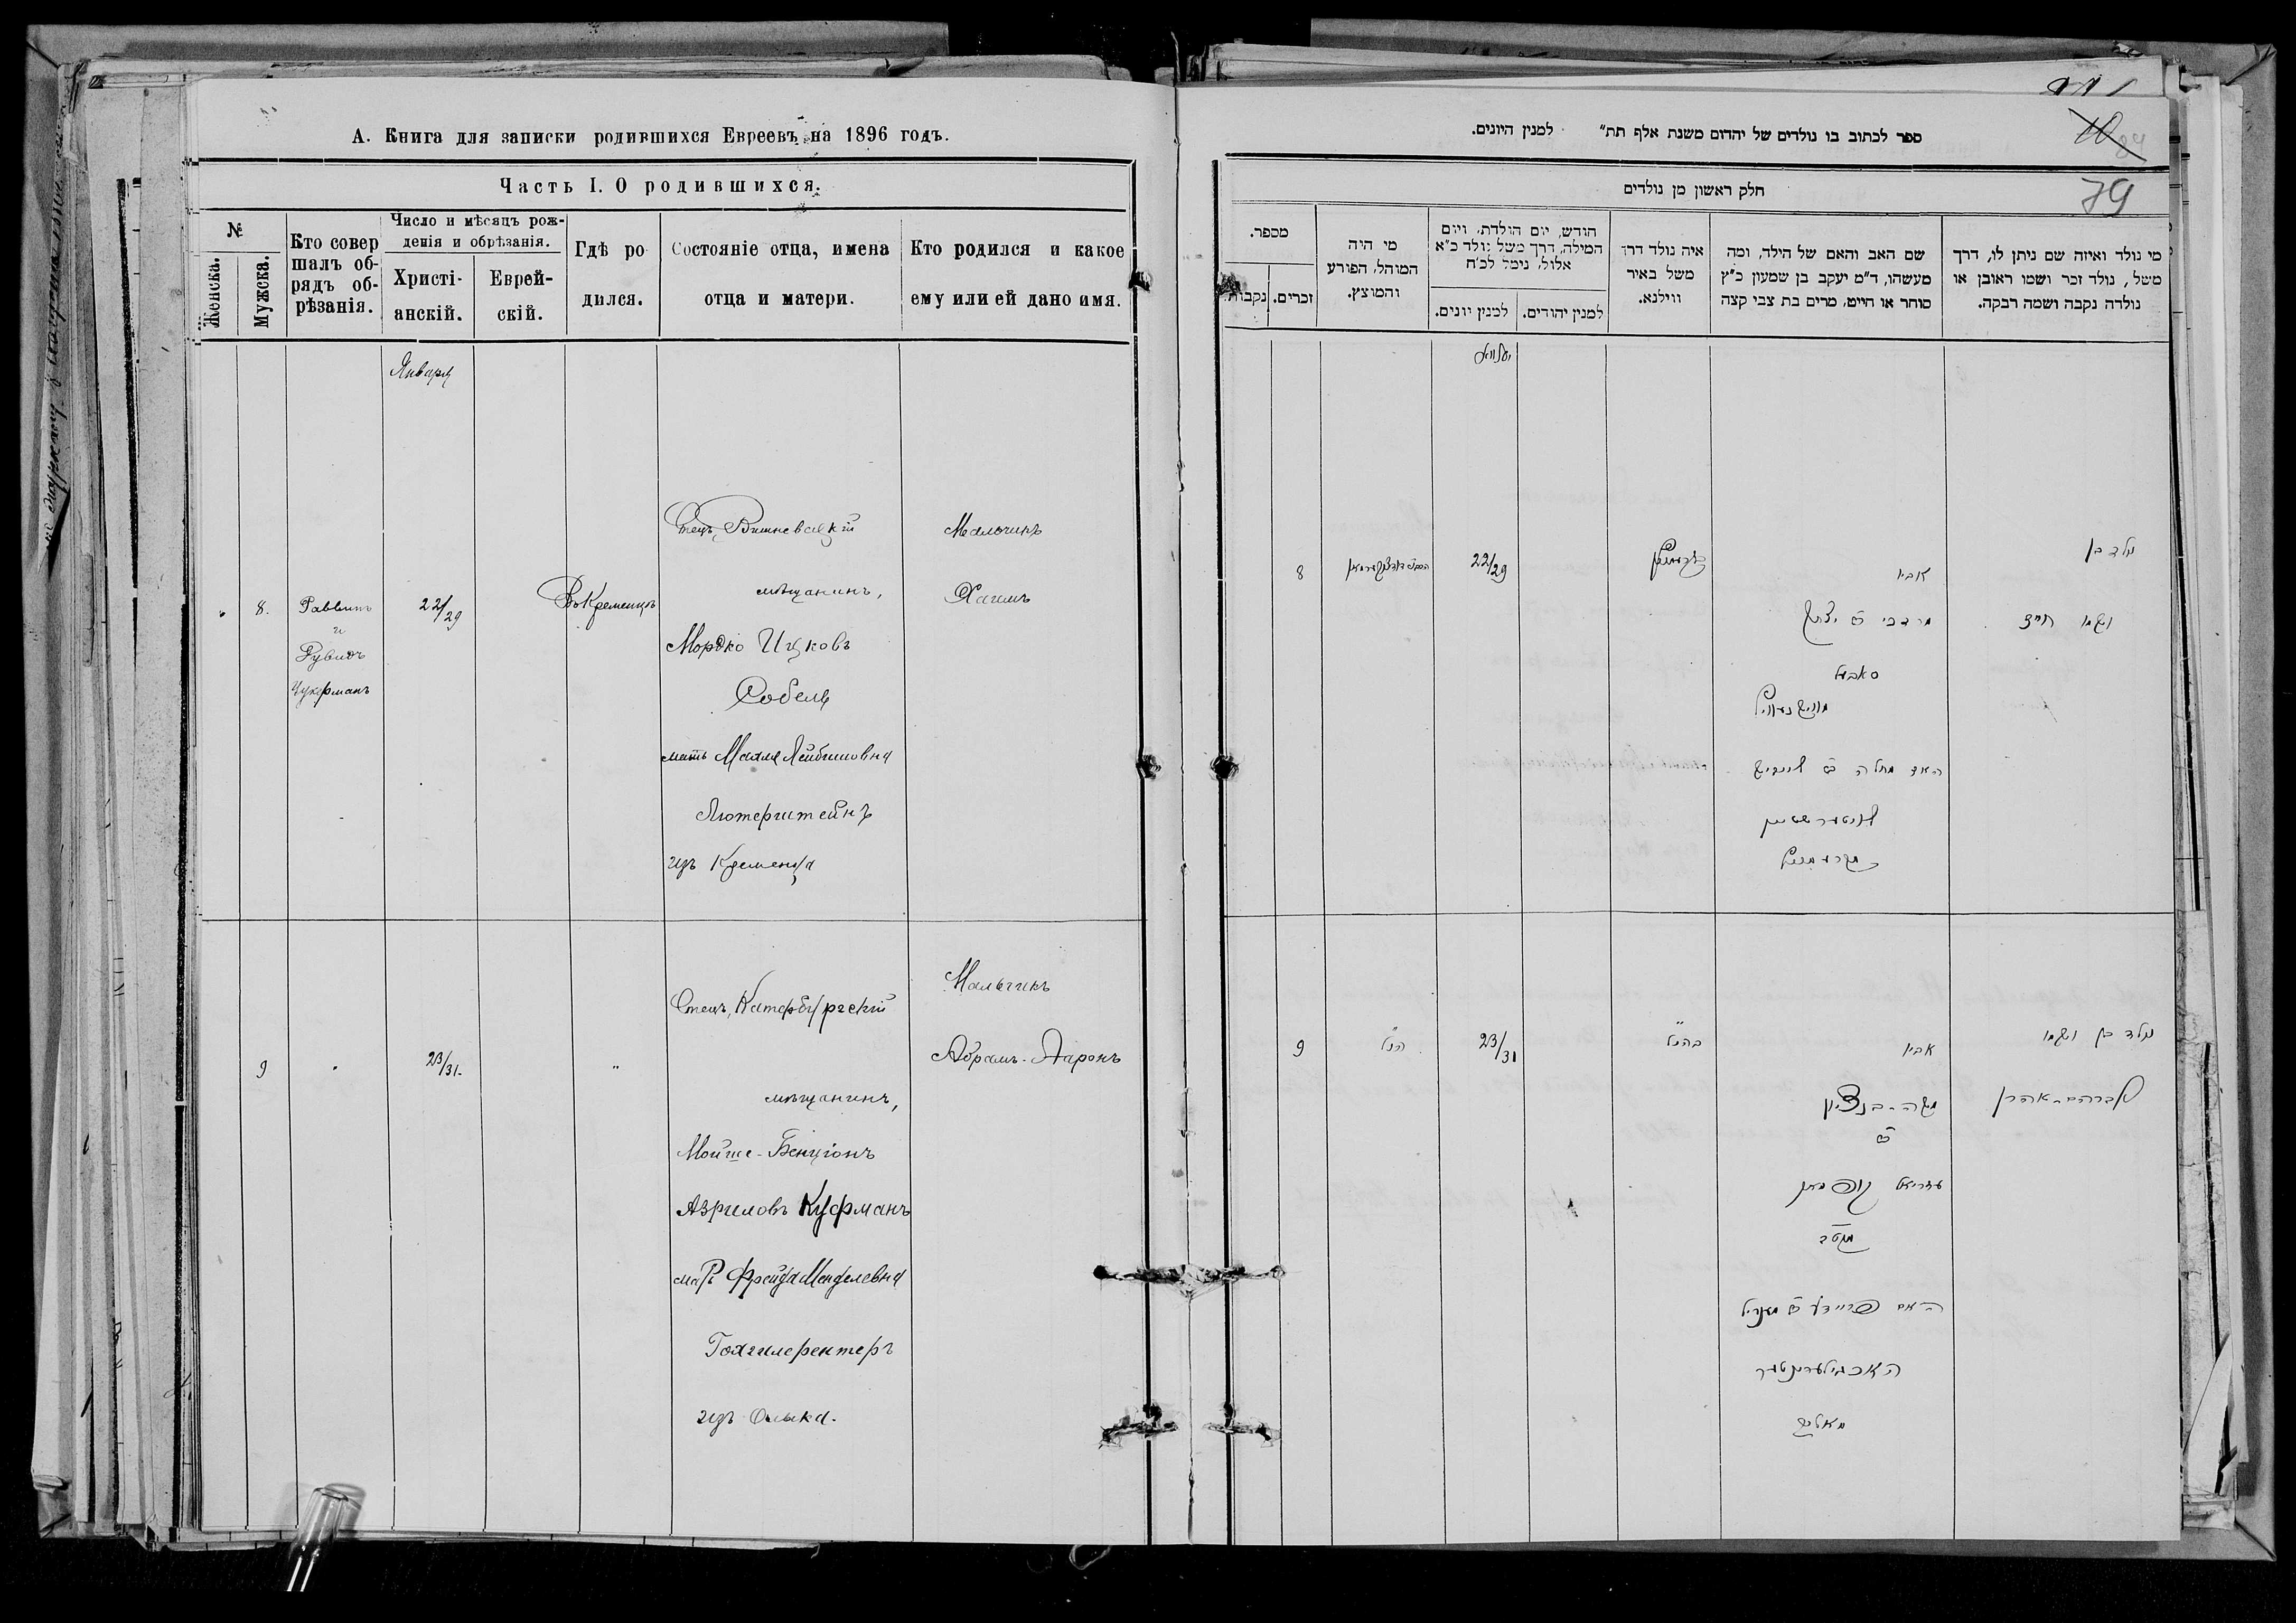 А. Книга для записки родившихся Евреевъ на 1896 годъ.
Часть I. О родившихся.
№
Женска.
Мужска.
Кто совер
шалъ об-
рядъ об-
рѣзанія.
Число и мѣсяцъ рож-
денія и обрѣзанія.
Христі-
анскій.
Еврей-
скій.
Гдѣ ро
дился.
Состояніе отца, имена
отца и матери.
Кто родился и какое
ему или ей дано имя.
Января
8.
Раввинъ
и
Рувинъ
Цукерманъ
22/29
Въ Кременцѣ
Отецъ, Вишневецкій
мѣщанинъ,
Мордко Ицковъ
Собель
мать Махля Лейбишовна
Лютерштейнъ
изъ Кременца
Мальчикъ
Хаимъ
9
23/31.
"
Отецъ, Катербургскій
мѣщанинъ,
Мойше-Бенціонъ
Азриловъ Куфманъ
мать Фрейда Менделевна
Гохгилерентеръ
изъ Олыка.
Мальчикъ
Абрамъ-Ааронъ
ספר לכתוב בו נולדים של יהדום משנת אלף תת״ למנין היונים.
79
חלק ראשון מן נולדים
מי נולד ואיזה שם ניתן לו, דרך
משל, נולד זכר ושמו ראובן או
נולדה נקבה ושמה רבקה.
שם האב והאם של הילד, ומה
מעשהו, ד״מ יעקב בן שמעון כ״ץ
סוחר או חייט, מרים בת צבי קצה
איה נולד דרך
משל באיר
ווילנא.
חודש, יום הולדת, ויום
המילה, דרך משל נולד כ״א
אלול, נימל לכ״ח
למנין יהודים.
למנין יונים.
מי היה
המוהל, הפורע
והמוצץ.
מספר.
זכרים.
נקבות.
יאנוואר
נולד בן
ושמו חיים
אביו
מרדכי ב׳ יצחק
סאבעל
מווישנעוויץ
האם מחלה ב׳ לייביש
לוטערשטיין
מקרעמניץ
קרעמניץ
22/29
8
נולד בן ושמו
אברהם-אהרן
אביו
משה-בנציון
ב׳
עזריאל קופמאן
האם פריידע ב׳ מענדיל
האכגילערענטער
מאליק
בהנ״ל
23/31
הנ״ל
9